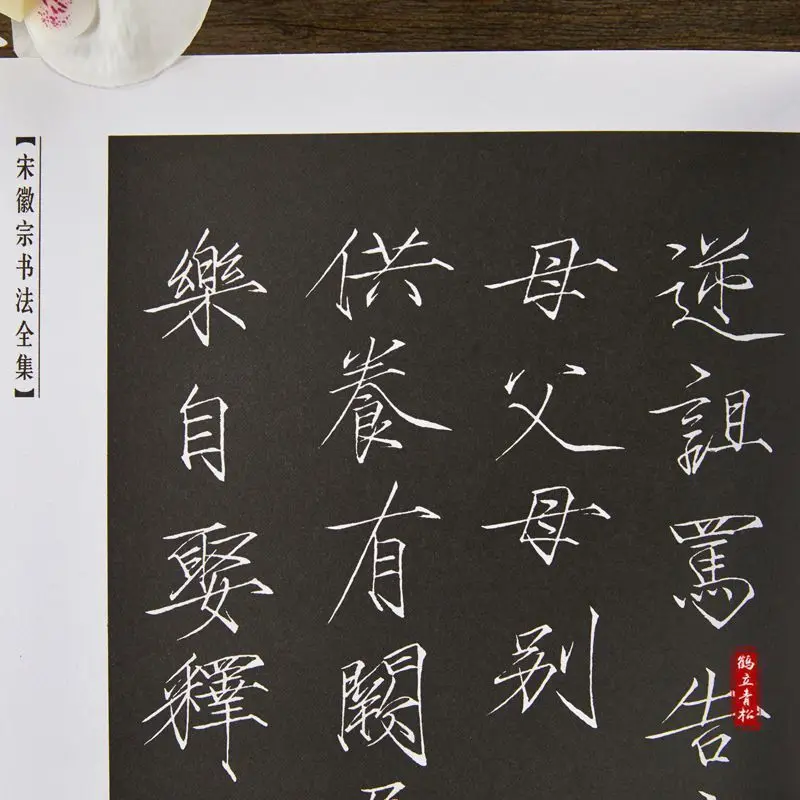 逆詛罵告
母父母别
供養有闕
樂自娶釋
【宋徽宗书法全集】
鹤立青松